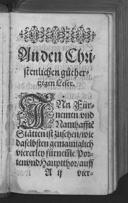 An den Chri
stenlichen güther-
tzigen Leser.
IN Für-
nemen vnd
Namhafften
Stätten ist zusehen, wie
daselbsten gemainklich
viererley fürneme Por-
ten vnd Hauptthor, auff
A ij vier-